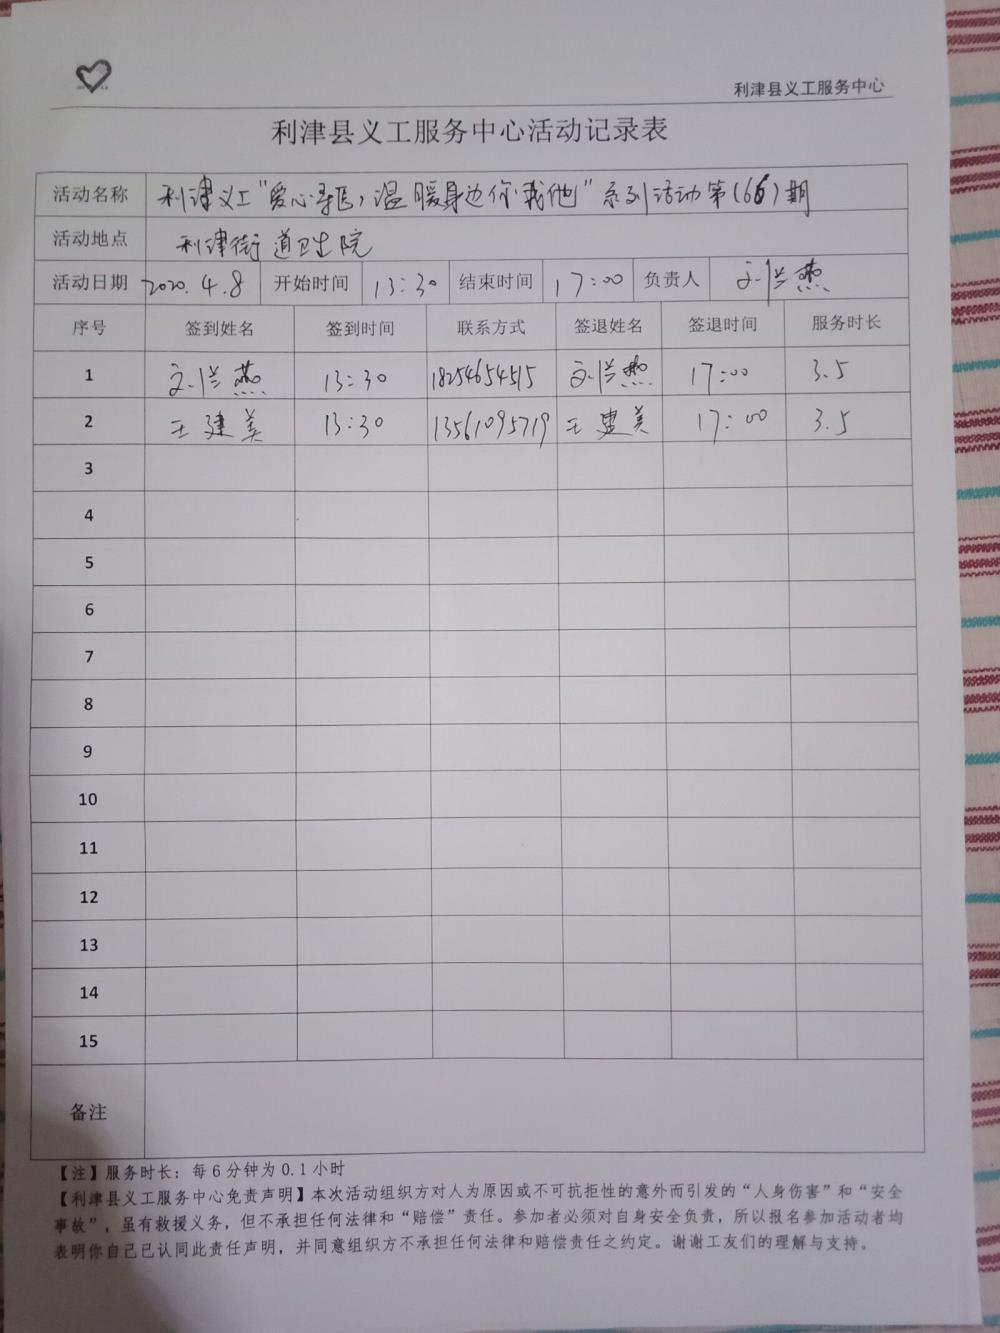 利津县义工服务中心
利津县义工服务中心活动记录表
活动名称 利津义工"爱心导医,温暖身边你我他"系列活动第(66)期
活动地点 利津街道卫生院
活动日期 2020.4.8 开始时间 13:30 结束时间 17:00 负责人 刘兰燕
序号 签到姓名 签到时间 联系方式 签退姓名 签退时间 服务时长
1 刘兰燕 13:30 18254654515 刘兰燕 17:00 3.5
2 王建美 13:30 13561095719 王建美 17:00 3.5
3
4
5
6
7
8
9
10
11
12
13
14
15
备注
【注】服务时长：每6分钟为0.1小时
【利津县义工服务中心免责声明】本次活动组织方对人为原因或不可抗拒性的意外而引发的“人身伤害”和“安全
事故”，虽有救援义务，但不承担任何法律和“赔偿”责任。参加者必须对自身安全负责，所以报名参加活动者均
表明你自己已认同此责任声明，并同意组织方不承担任何法律和赔偿责任之约定。谢谢工友们的理解与支持。